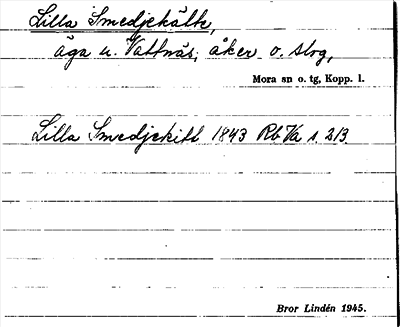 Lilla Smedjekälk,
äga u. Vattnäs; åker o. slog,
Mora sn o. tg, Kopp. l.
Lilla Smedjekitl 1843 Rb Va s. 213.
Bror Lindén 1945.